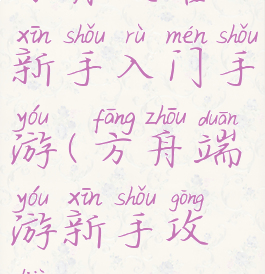 xīn shǒu rù mén shǒu
新手入门手
yóu fāng zhōu duān
游(方舟端
yóu xīn shǒu gōng
游新手攻